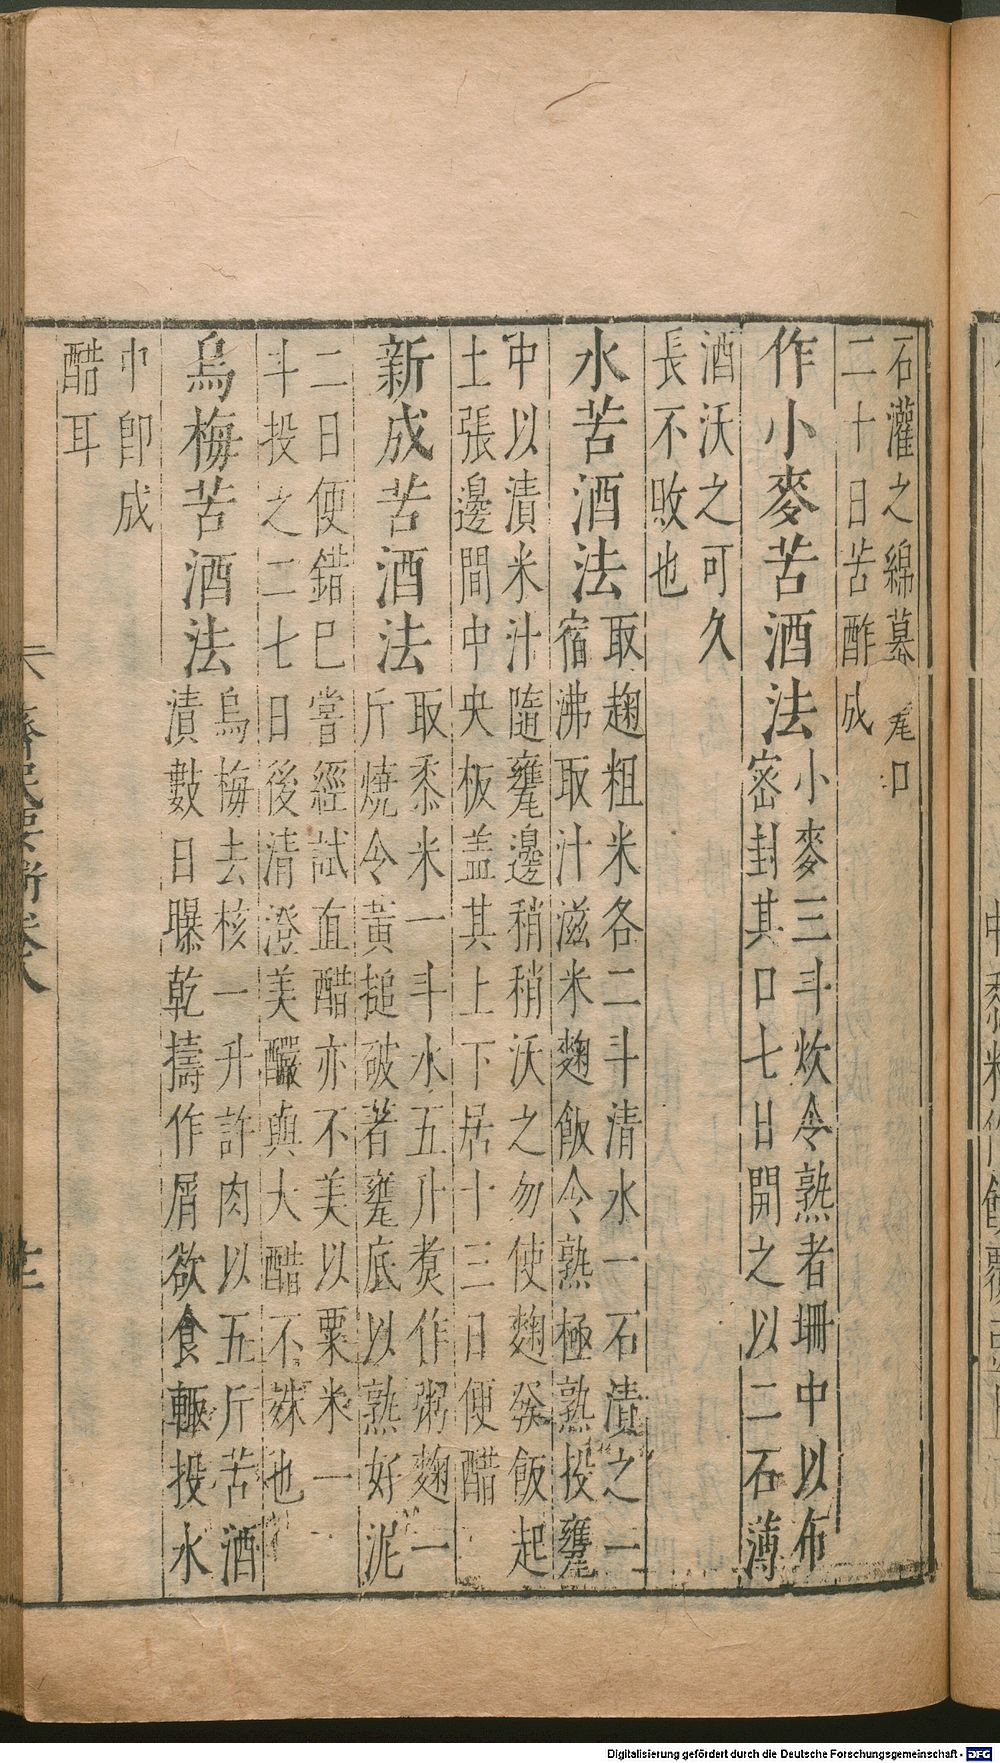 石灌之綿幕瓮口
二十日苦酢成
作小麥苦酒法
小麥三斗炊令熟者堈中以布
密封其口七日開之以二石薄
酒沃之可久
長不敗也
水苦酒法
取麹粗米各二斗清水一石漬之一
宿沸取汁滋米麴飯令熟極熟投甕
中以漬米汁隨甕邊稍稍沃之勿使麴發飯起
土張邊間中央板盖其上下居十三日便醋
新成苦酒法
取黍米一斗水五升煑作粥麴一
斤燒令黃搥破著甕底以熟好泥
二日便錯巳嘗經試直醋亦不美以粟米一
斗投之二七日後清澄美釅與大醋不殊也
烏梅苦酒法
烏梅去核一升許肉以五斤苦酒
漬數日曝乾擣作屑欲食輙投水
中卽成
醋耳
齊民要術卷八
廿二
Digitalisierung gefördert durch die Deutsche Forschungsgemeinschaft - DFG